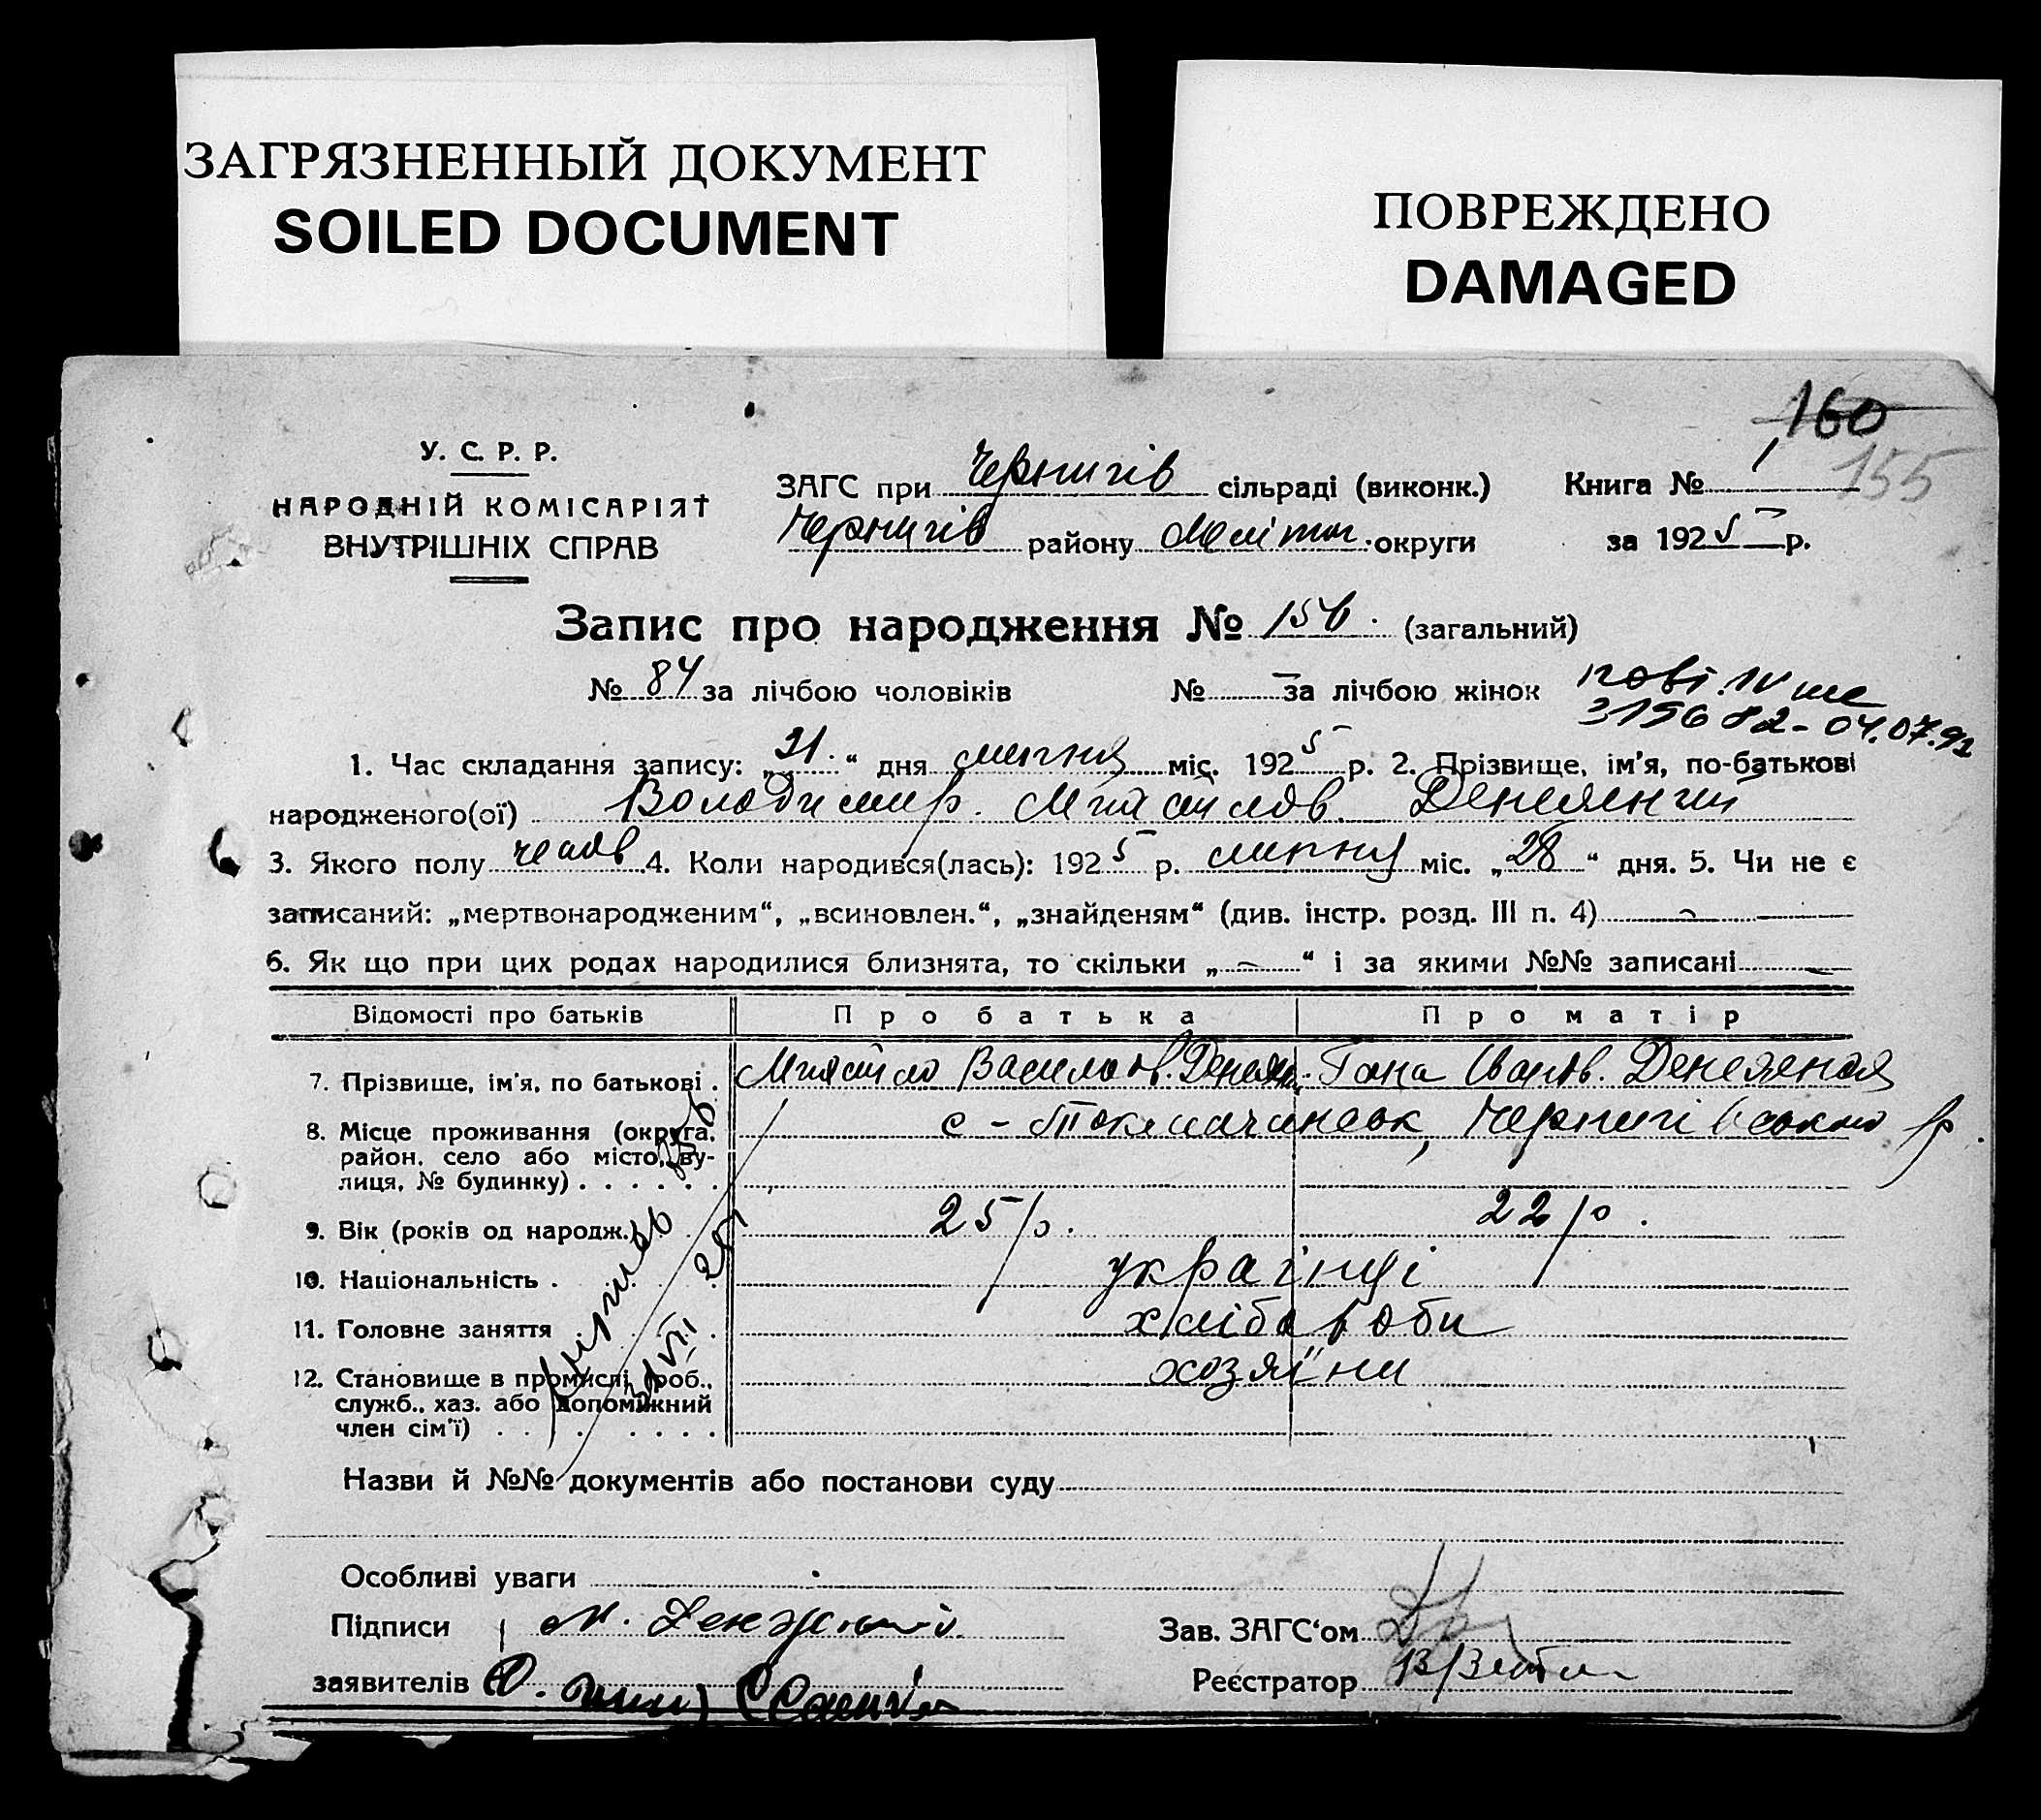 ЗАГРЯЗНЕННЫЙ ДОКУМЕНТ
SOILED DOCUMENT
ПОВРЕЖДЕНО
DAMAGED
160
155
У. С. Р. Р.
НАРОДНІЙ КОМІСАРІЯТ
ВНУТРІШНІХ СПРАВ
ЗАГС при Чернигів сільраді (виконк.) Книга № 1
Чернигів району Меліточ. округи за 1925 р.
Запис про народження № 156. (загальний)
№ 84 за лічбою чоловіків № — за лічбою жінок
04.07.92
1. Час складання запису: „31.“ дня липня міс. 1925 р. 2. Прізвище, ім'я, по-батькові
народженого(ої) Володимир. Михайлов.
3. Якого полу чолов 4. Коли народився(лась): 1925 р. липня міс. „28“ дня. 5. Чи не є
записаний: „мертвонародженим“, „всиновлен.“, „знайденям“ (див. інстр. розд. III п. 4) —
6. Як що при цих родах народилися близнята, то скільки „—“ і за якими №№ записані —
Відомості про батьків Про батька Про матір
7. Прізвище, ім'я, по батькові . Михайло Васильов. Ганна Иванов.
8. Місце проживання (округа, с - Токмачинськ, Чернигівського р.
район, село або місто, ву-
лиця, № будинку) . . . . . .
9. Вік (років од народж.) 25 р. 22 р.
10. Національність . українці
11. Головне заняття хлібороби
12. Становище в промислі (роб., хозяїни
служб., хаз. або допоміжний
член сім'ї) . . . . . . .
Назви й №№ документів або постанови суду
Особливі уваги
Підписи М.
Зав. ЗАГС'ом
заявителів
Реєстратор